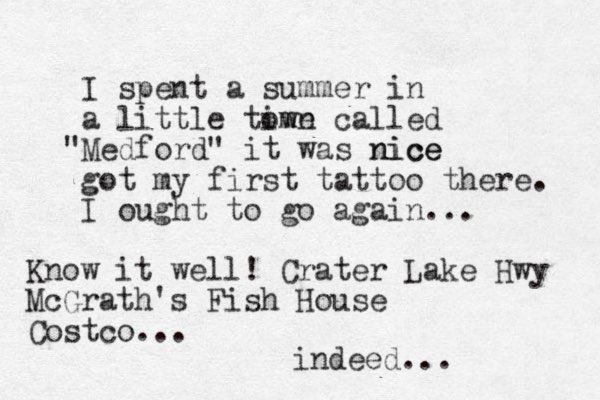 I spent a summer in
a little town called
"Medford" it was nice
got my first tattoo there.
I ought to go again...
Know it well! Crater Lake Hwy
McGrath's Fish House
Costco...
indeed...